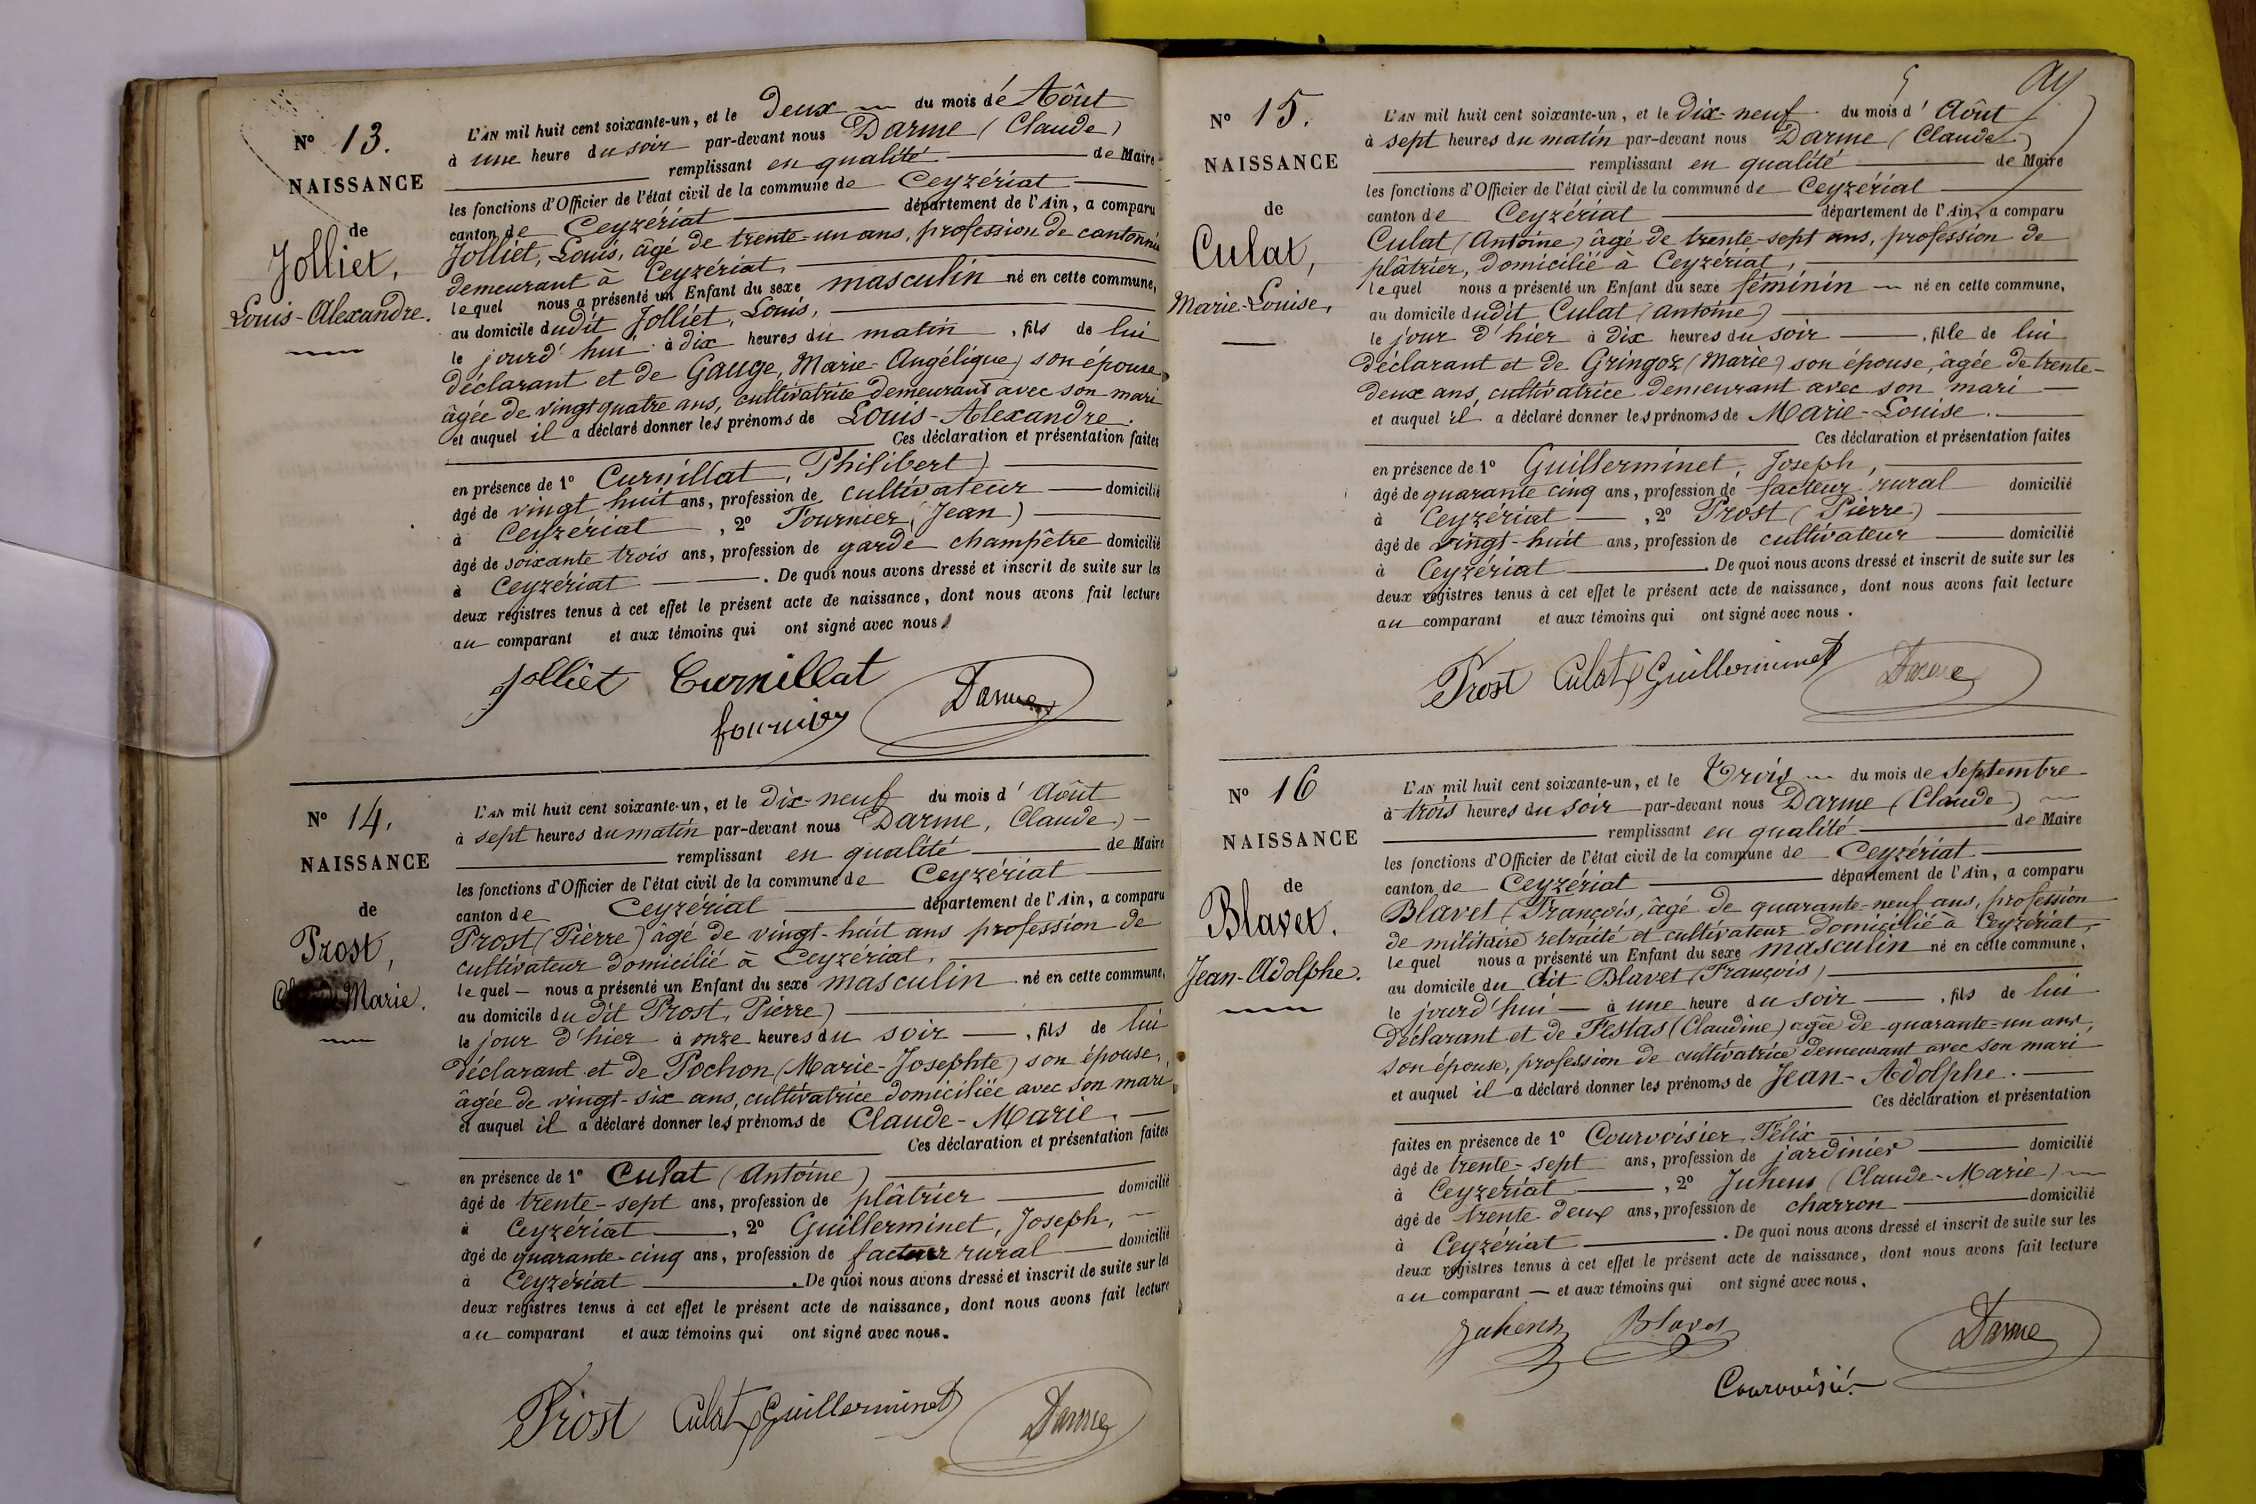 N° 13.
NAISSANCE
de
Jolliet,
Louis-Alexandre.
L'AN mil huit cent soixante-un, et le Deux du mois de Aôut
à une heure du soir par-devant nous Darme (Claude)
remplissant en qualité de Maire
les fonctions d'Officier de l'état civil de la commune de Ceyzériat
canton de Ceyzériat département de l'Ain, a comparu
Jolliet, Louis, âgé de trente-un ans, profession de cantonnier
demeurant à Ceyzériat,
lequel nous a présenté un Enfant du sexe masculin né en cette commune,
au domicile dudit Jolliet, Louis,
le jourd'hui à dix heures du matin, fils de lui
déclarant et de Gauge, Marie-Angélique) son épouse
âgée de vingt quatre ans, cultivatrice demeurant avec son mari
et auquel il a déclaré donner les prénoms de Louis-Alexandre.
Ces déclaration et présentation faites
en présence de 1° Curnillat, Philibert)
âgé de vingt huit ans, profession de cultivateur domicilié
à Ceyzériat, 2° Fournier, (Jean)
âgé de soixante trois ans, profession de garde champêtre domicilié
à Ceyzériat. De quoi nous avons dressé et inscrit de suite sur les
deux registres tenus à cet effet le présent acte de naissance, dont nous avons fait lecture
au comparant et aux témoins qui ont signé avec nous.
Jolliet Curnillat
fournier Darme
N° 14.
NAISSANCE
de
Prost,
Marie.
L'AN mil huit cent soixante-un, et le dix-neuf du mois d' Aôut
à sept heures du matin par-devant nous Darme, Claude)
remplissant en qualité de Maire
les fonctions d'Officier de l'état civil de la commune de Ceyzériat
canton de Ceyzériat département de l'Ain, a comparu
Prost (Pierre) âgé de vingt-huit ans profession de
cultivateur domicilié à Ceyzériat,
lequel nous a présenté un Enfant du sexe masculin né en cette commune,
au domicile dudit Prost, Pierre)
le jour d'hier à onze heures du soir, fils de lui
déclarant et de Pochon (Marie-Josephte) son épouse,
âgée de vingt-six ans, cultivatrice domiciliée avec son mari
et auquel il a déclaré donner les prénoms de Claude-Marie.
Ces déclaration et présentation faites
en présence de 1° Culat (Antoine)
âgé de trente-sept ans, profession de plâtrier domicilié
à Ceyzériat, 2° Guillerminet, Joseph,
âgé de quarante-cinq ans, profession de facteur rural domicilié
à Ceyzériat. De quoi nous avons dressé et inscrit de suite sur les
deux registres tenus à cet effet le présent acte de naissance, dont nous avons fait lecture
au comparant et aux témoins qui ont signé avec nous.
Prost Culat Guillerminet Darme
N° 15.
NAISSANCE
de
Culat,
Marie-Louise,
L'AN mil huit cent soixante-un, et le dix-neuf du mois d' Aôut
à sept heures du matin par-devant nous Darme (Claude)
remplissant en qualité de Maire
les fonctions d'Officier de l'état civil de la commune de Ceyzériat
canton de Ceyzériat département de l'Ain, a comparu
Culat (Antoine) âgé de trente-sept ans, profession de
plâtrier, domicilié à Ceyzériat,
lequel nous a présenté un Enfant du sexe féminin né en cette commune,
au domicile dudit Culat (Antoine)
le jour d'hier à dix heures du soir, fille de lui
déclarant et de Gringoz (Marie) son épouse, âgée de trente-
deux ans, cultivatrice demeurant avec son mari
et auquel il a déclaré donner les prénoms de Marie-Louise.
Ces déclaration et présentation faites
en présence de 1° Guillerminet, Joseph,
âgé de quarante cinq ans, profession de facteur rural domicilié
à Ceyzériat, 2° Prost (Pierre)
âgé de vingt-huit ans, profession de cultivateur domicilié
à Ceyzériat. De quoi nous avons dressé et inscrit de suite sur les
deux registres tenus à cet effet le présent acte de naissance, dont nous avons fait lecture
au comparant et aux témoins qui ont signé avec nous.
Prost Culat Guillerminet Darme
N° 16
NAISSANCE
de
Blavet.
Jean-Adolphe.
L'AN mil huit cent soixante-un, et le Trois du mois de Septembre
à trois heures du soir par-devant nous Darme (Claude)
remplissant en qualité de Maire
les fonctions d'Officier de l'état civil de la commune de Ceyzériat
canton de Ceyzériat département de l'Ain, a comparu
Blavet (François, âgé de quarante-neuf ans, profession
de militaire retraité et cultivateur domicilié à Ceyzériat,
lequel nous a présenté un Enfant du sexe masculin né en cette commune,
au domicile du dit Blavet (François)
le jourd'hui à une heure du soir, fils de lui
déclarant et de (Claudine) âgée de quarante-un ans,
son épouse, profession de cultivatrice demeurant avec son mari
et auquel il a déclaré donner les prénoms de Jean-Adolphe.
Ces déclaration et présentation
faites en présence de 1° Courvoisier, Félix
âgé de trente-sept ans, profession de jardinier domicilié
à Ceyzériat, 2° Juhens (Claude-Marie)
âgé de trente deux ans, profession de charron domicilié
à Ceyzériat. De quoi nous avons dressé et inscrit de suite sur les
deux registres tenus à cet effet le présent acte de naissance, dont nous avons fait lecture
au comparant et aux témoins qui ont signé avec nous.
Juhens Blavet Darme
Courvoisié